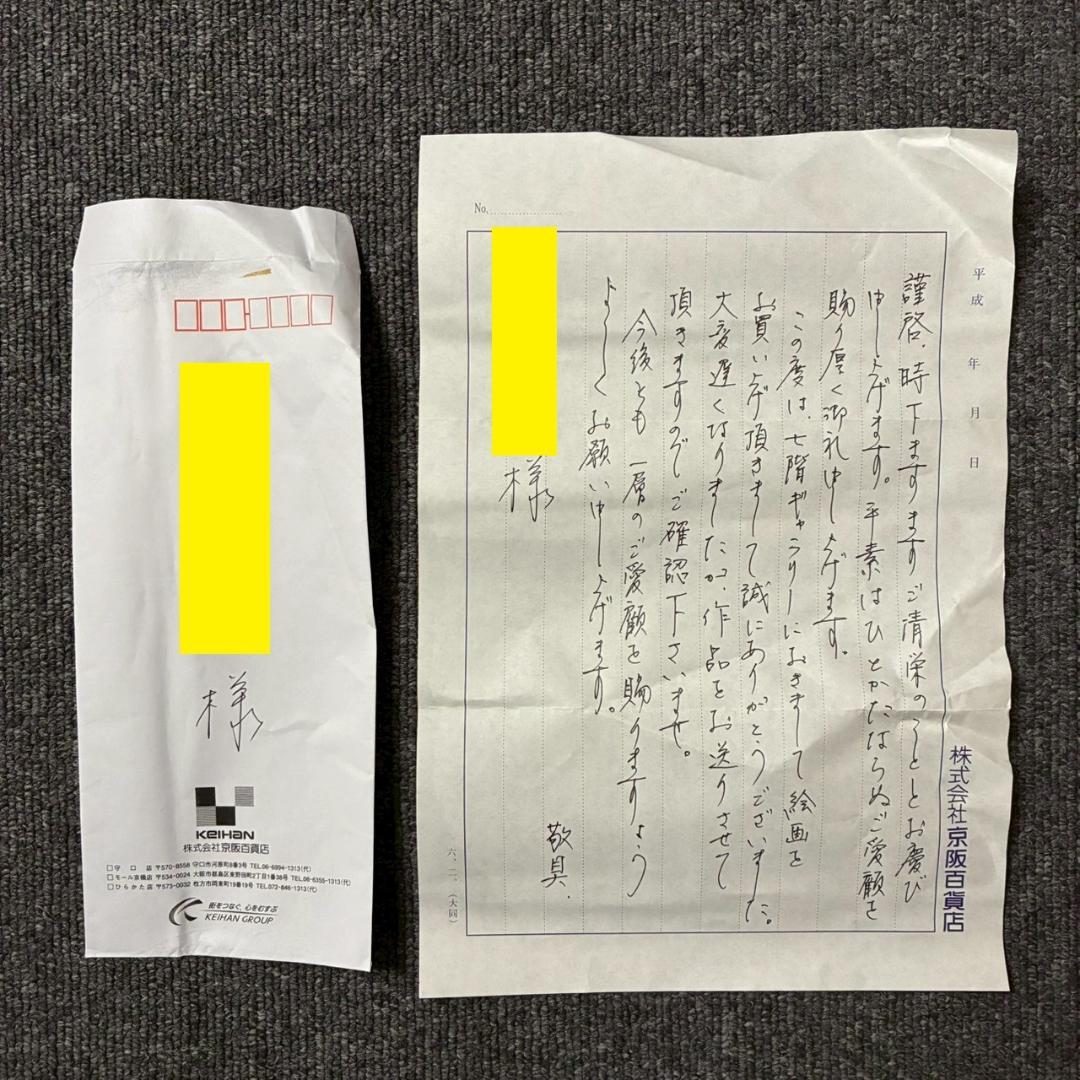 様
KEIHAN
株式会社京阪百貨店
□守口店 〒570-8558 守口市河原町8番3号 TEL.06-6994-1313(代)
□モール京橋店 〒534-0024 大阪市都島区東野田町2丁目1番38号 TEL.06-6355-1313(代)
□ひらかた店 〒573-0032 枚方市岡東町19番19号 TEL.072-846-1313(代)
街をつなぐ、心をむすぶ
KEIHAN GROUP
No.
平成 年 月 日
謹啓、時下ますますご清栄のこととお慶び
申し上げます。平素はひとかたならぬご愛顧を
賜り厚く御礼申し上げます。
この度は、七階ギャラリーにおきまして絵画を
お買い上げ頂きまして誠にありがとうございました。
大変遅くなりましたが、作品をお送りさせて
頂きますのでご確認下さいませ。
今後とも一層のご愛顧を賜りますよう
よろしくお願い申し上げます。
敬具、
様
株式会社京阪百貨店
(大同)